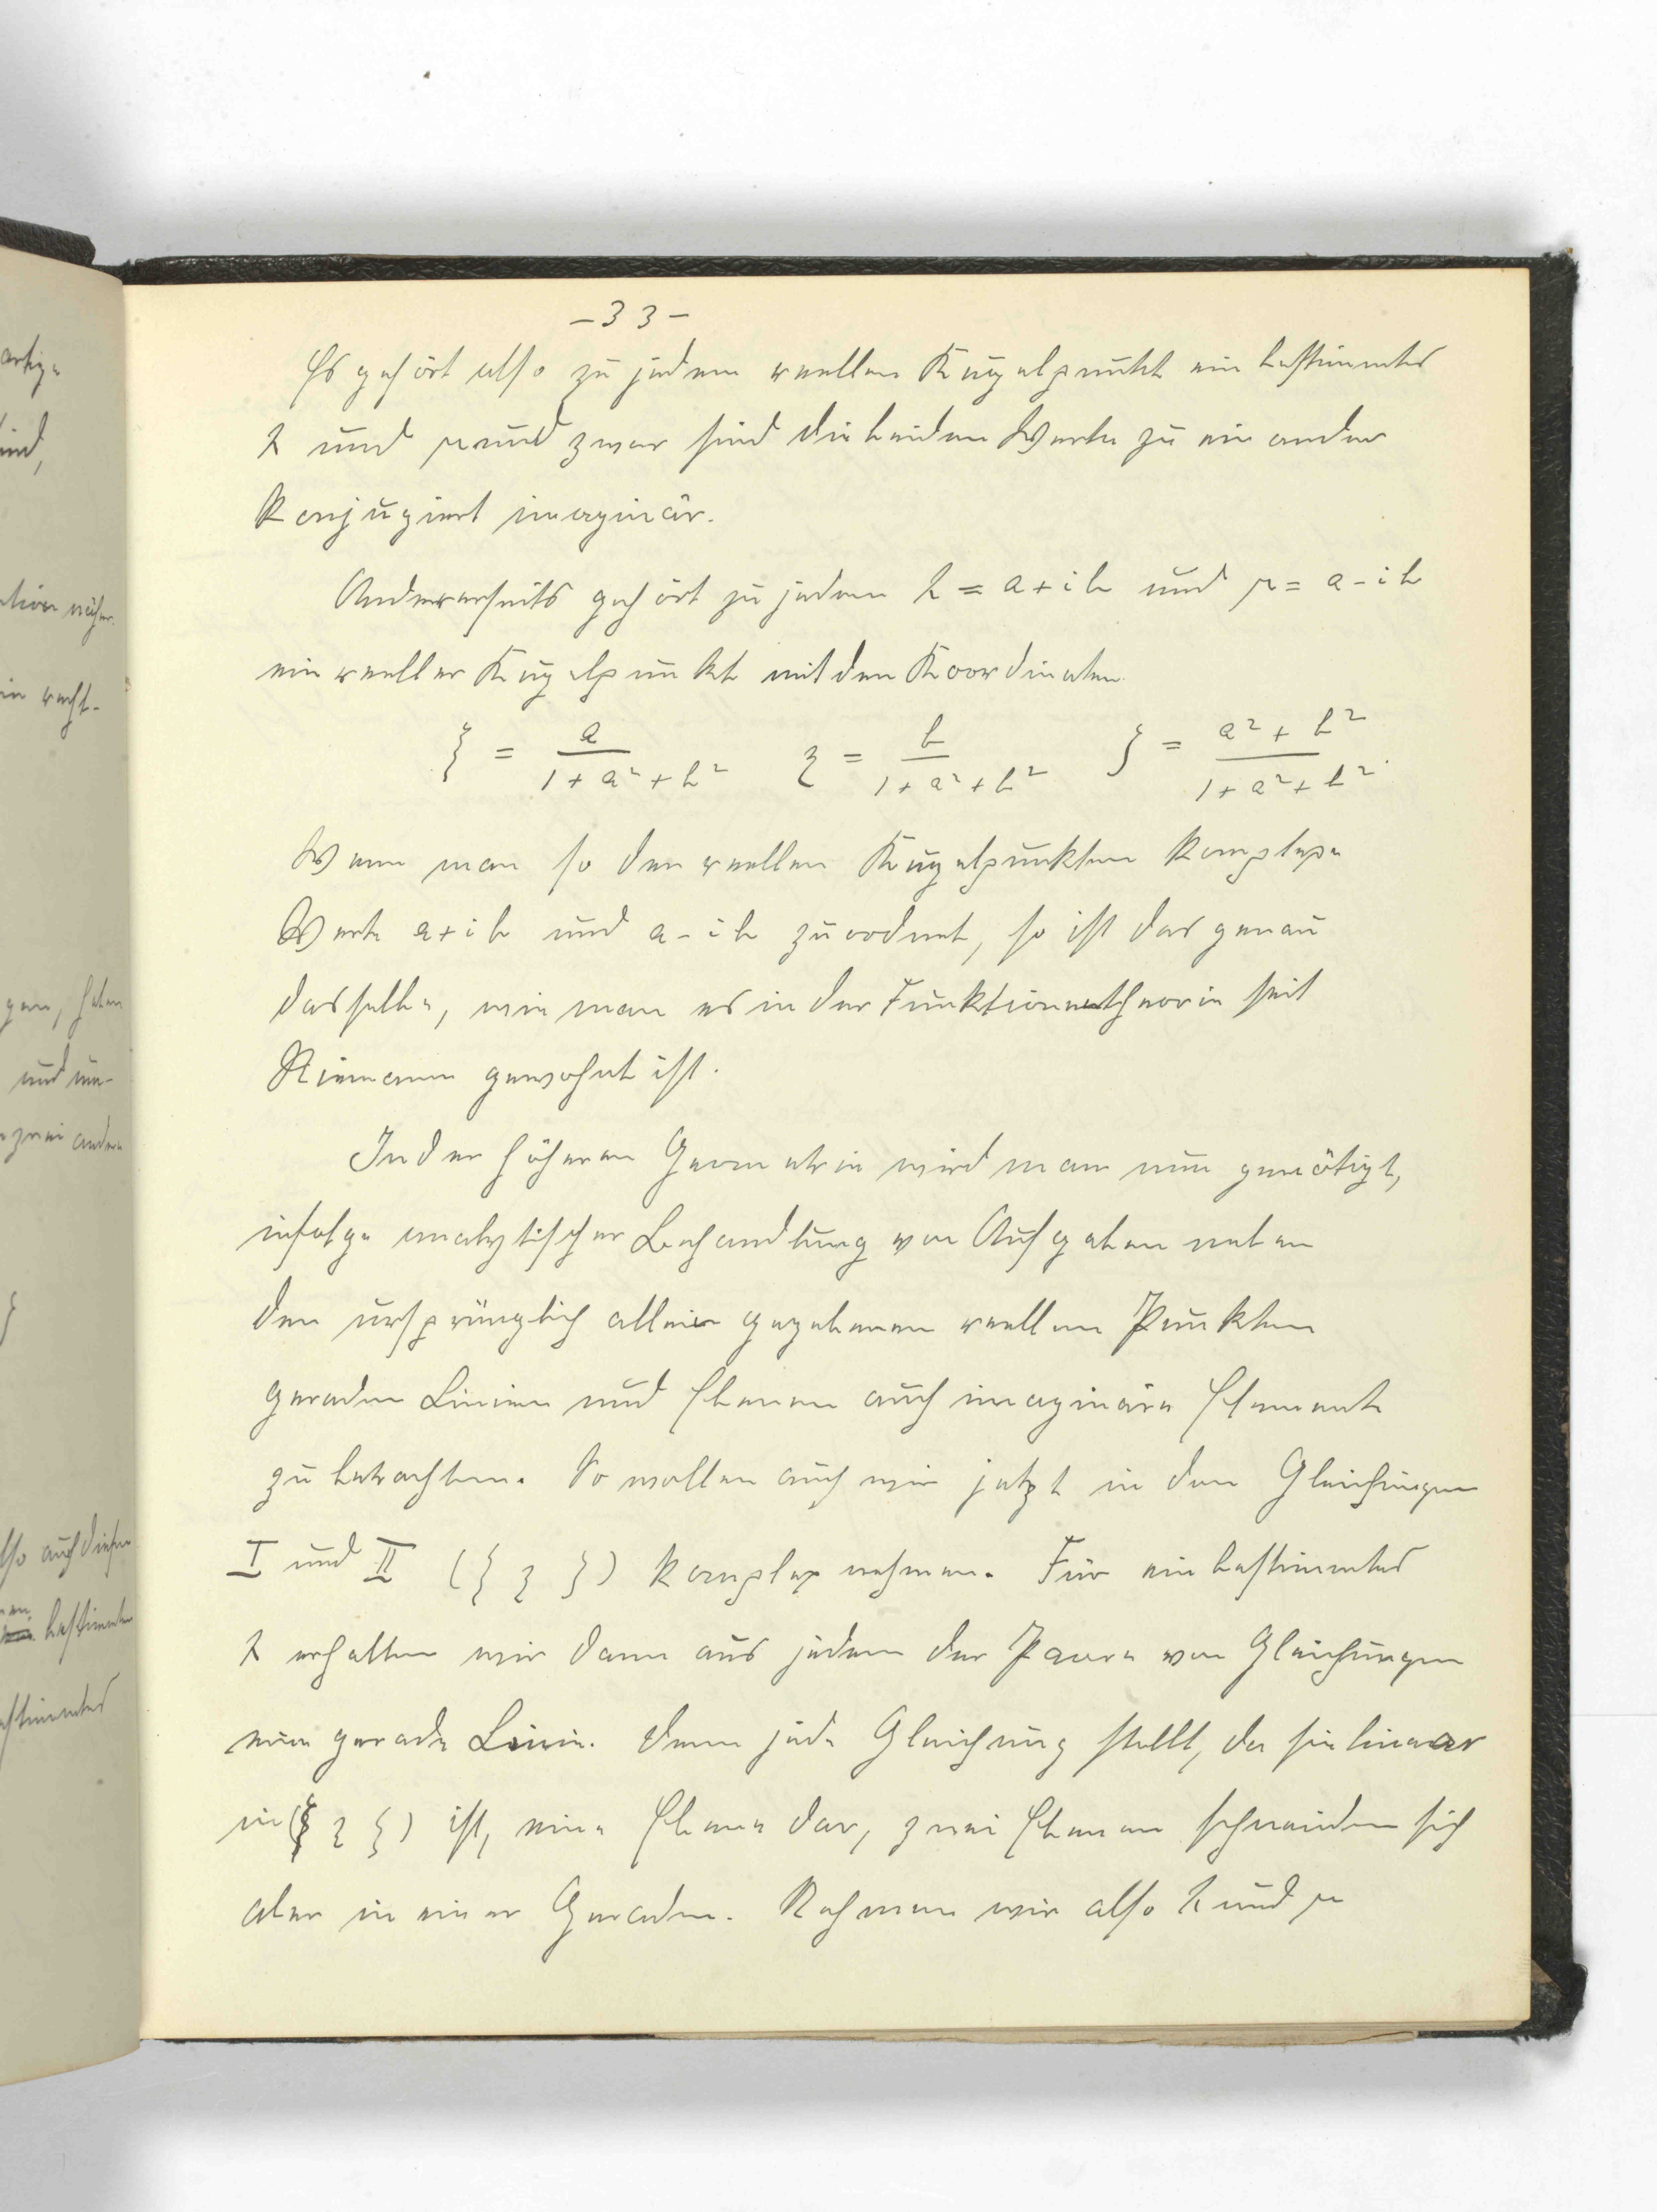 artige
ind,
-33-
Es gehört also zu jedem reellen Kugelpunkt ein bestimmtes
λ und μ und zwar sind die beiden Werte zu ein ander
konjugiert imaginär.
Andererseits gehört zu jedem λ = a+ib und μ = a-ib
ein reeller Kugelpunkt mit den Koordinaten
ξ = a / (1+a²+b²) η = b / (1+a²+b²) ζ = (a²+b²) / (1+a²+b²).
Wenn man so den reellen Kugelpunkten komplexe
Werte a+ib und a-ib zuordnet, so ist das genau
dasselbe, wie man es in der Funktionentheorie seit
Riemann gewohnt ist.
In der höheren Geometrie wird man nun genötigt,
infolge analytischer Behandlung von Aufgaben neben
den ursprünglich allein gegebenen reellen Punkten
geraden Linien und Ebenen auch imaginäre Elemente
zu betrachten. So wollen auch wir jetzt in den Gleichungen
I und II (ξ η ζ) komplex nehmen. Für ein bestimmtes
λ erhalten wir dann aus jedem der Paare von Gleichungen
eine gerade Linie. Denn jede Gleichung stellt, da sie linear
in (ξ η ζ) ist, eine Ebene dar, zwei Ebenen schneiden sich
aber in einer Geraden. Nehmen wir also λ und μ